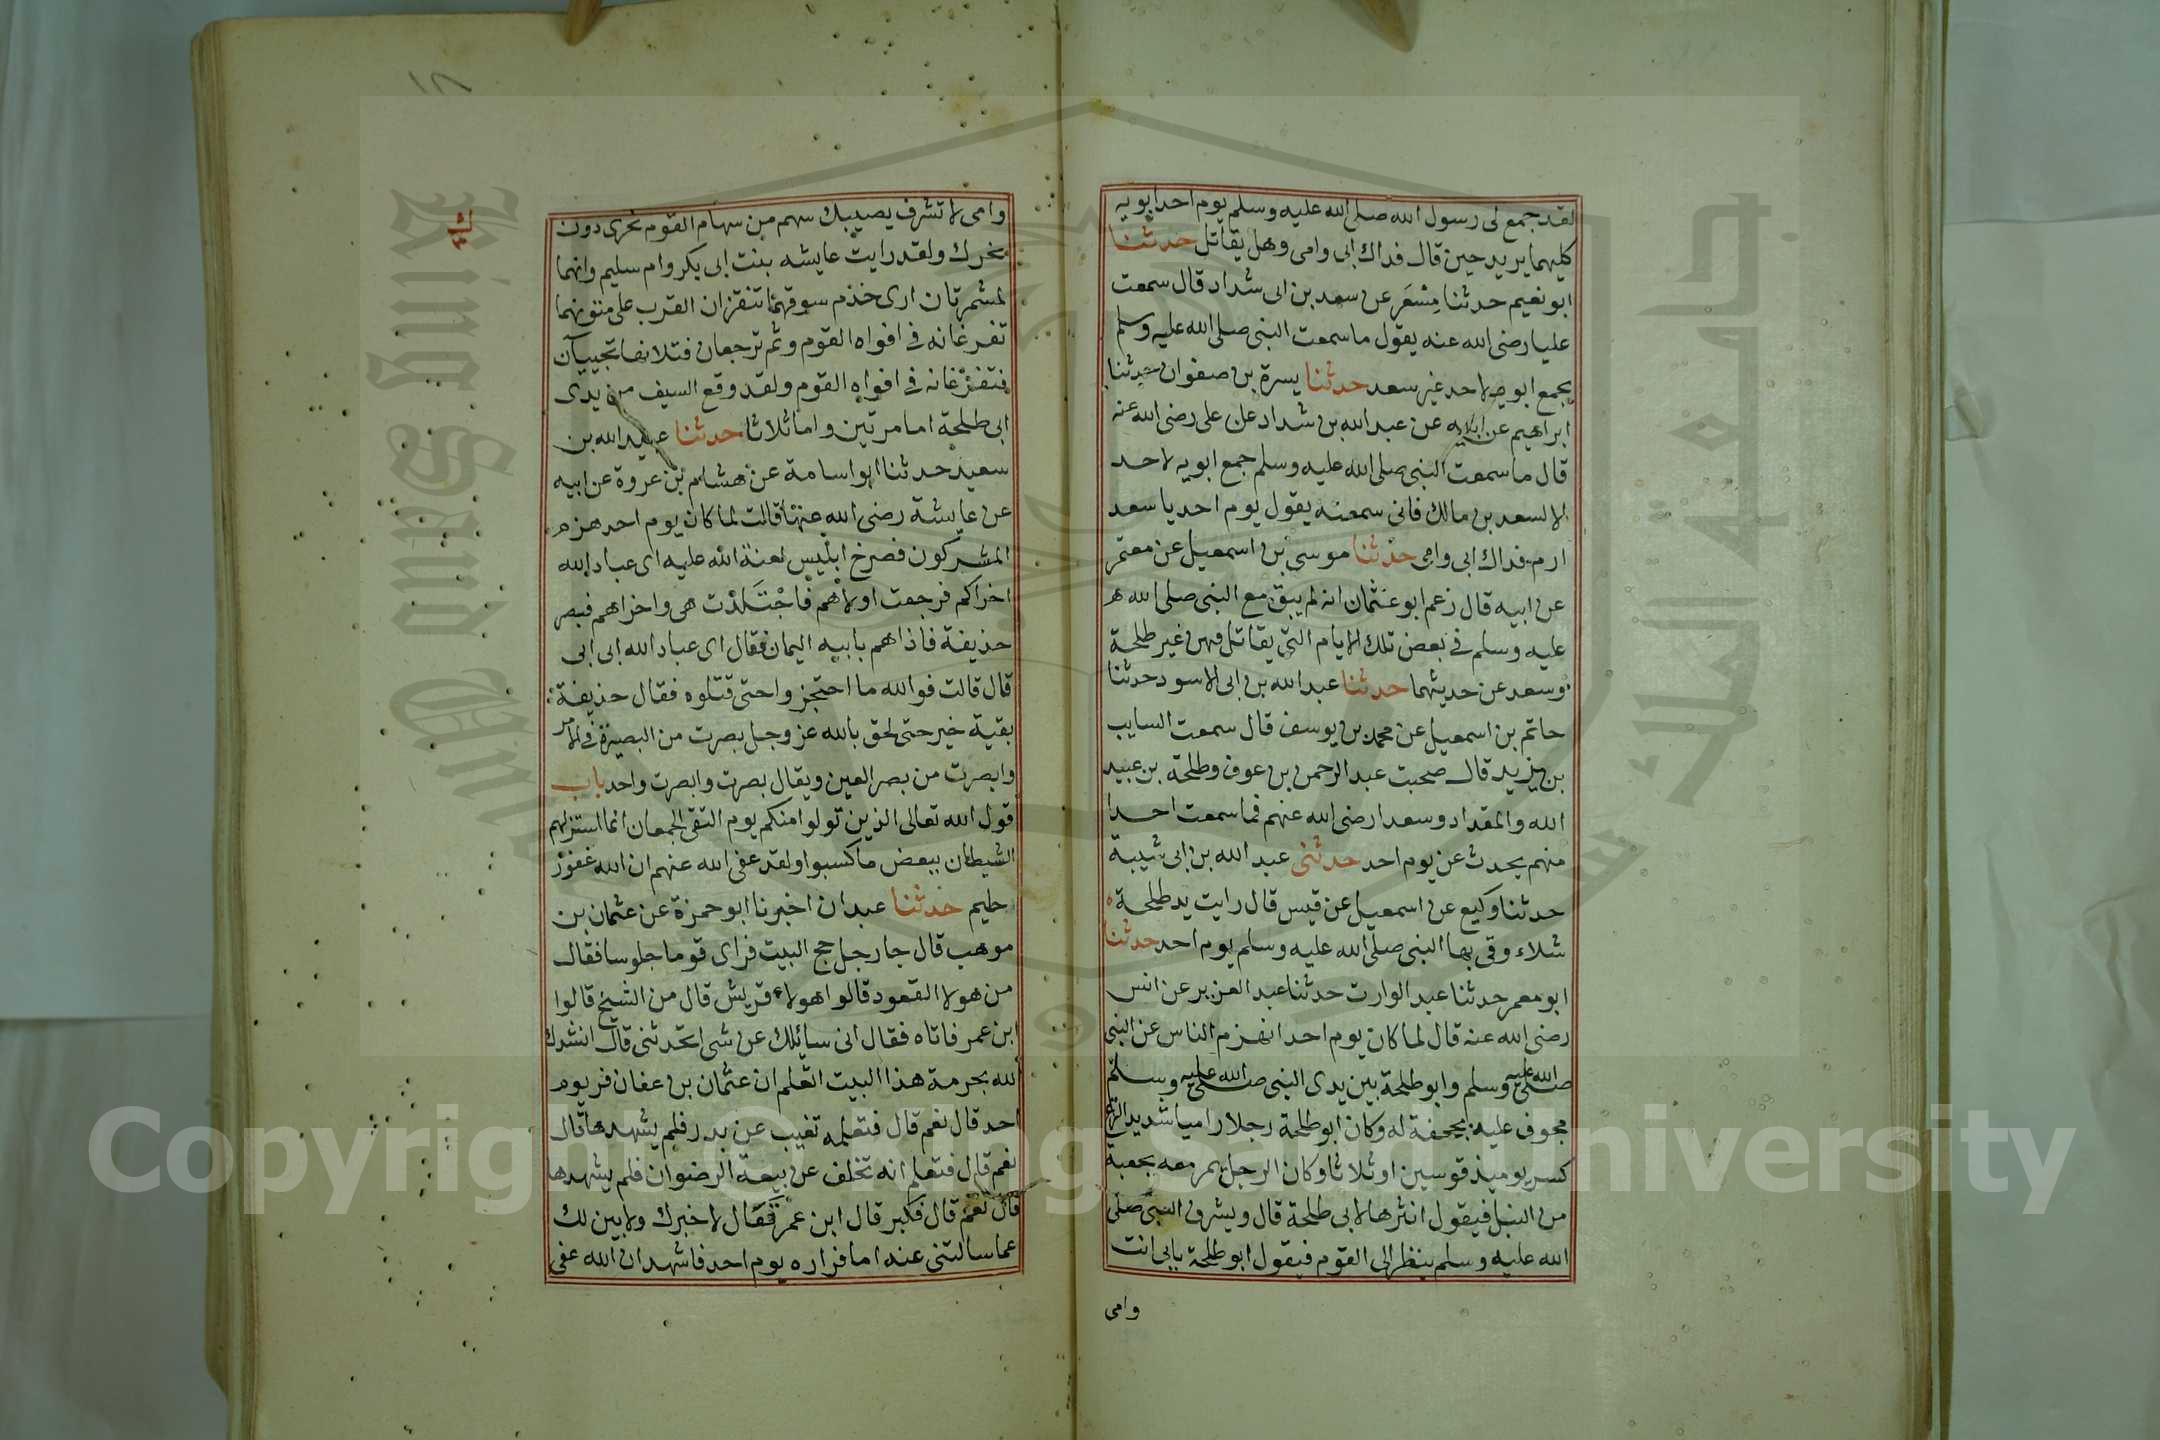 لقد جمع لى رسول الله صلى الله عليه وسلم يوم احد ابويه
كليهما يريد حين قال فداك ابى وامى وهل يقاتل حدثنا
ابو نعيم حدثنا مِسْعَر عن سعد بن ابى شداد قال سمعت
عليا رضى الله عنه يقول ما سمعت النبى صلى الله عليه وسلم
يجمع ابويه لاحد غير سعد حدثنا يسرة بن صفوان حدثنا
ابراهيم عن ابيه عن عبد الله بن شداد عن على رضى الله عنه
قال ما سمعت النبى صلى الله عليه وسلم جمع ابويه لاحد
الا لسعد بن مالك فانى سمعته يقول يوم احد يا سعد
ارم فداك ابى وامى حدثنا موسى بن اسمعيل عن معتمر
عن ابيه قال زعم ابو عثمان انه لم يبق مع النبى صلى الله
عليه وسلم فى بعض تلك الايام التى يقاتل فهن غير طلحة
وسعد عن حديثهما حدثنا عبد الله بن ابى الاسود حدثنا
حاتم بن اسمعيل عن محمد بن يوسف قال سمعت السايب
بن يزيد قال صحبت عبد الرحمن بن عوف وطلحة بن عبيد
الله والمقداد وسعدا رضى الله عنهم فما سمعت احدا
منهم يحدث عن يوم احد حدثنى عبد الله بن ابى شيبة
حدثنا وكيع عن اسمعيل عن قيس قال رايت يد طلحة
شلاء وقى بها النبى صلى الله عليه وسلم يوم احد حدثنا
ابو معمر حدثنا عبد الوارث حدثنا عبد العزيز عن انس
رضى الله عنه قال لما كان يوم احد انهزم الناس عن النبى
صلى الله عليه وسلم وابو طلحة بين يدى النبى صلى الله عليه وسلم
مجوف عليه بحجفة له وكان ابو طلحة رجلا راميا شديد النزع
كسر يوميذ قوسين او ثلاثا وكان الرجل يمر معه بجعبة
من النبل فيقول انثرها لابى طلحة قال ويشرف النبى صلى
الله عليه وسلم ينظر الى القوم فيقول ابو طلحة بابى انت
وامى
وامى لا تشرف يصيبك سهم من سهام القوم نحرى دون
نحرك ولقد رايت عايشه بنت ابى بكر وام سليم وانهما
لمشمرتان ارى خذم سوقهما تنقزان القرب على متونهما
تفرغانه فى افواه القوم وثم ترجعان فتلانها تجييان
فتفرغانه فى افواه القوم ولقد وقع السيف من يدى
ابى طلحة اما مرتين واما ثلاثا حدثنا عبيد الله بن
سعيد حدثنا ابو اسامة عن هشام بن عروة عن ابيه
عن عايشة رضى الله عنها قالت لما كان يوم احد هزم
المشركون فصرخ ابليس لعنة الله عليه اى عباد الله
اخراكم فرجعت اولاهم فاجتلدت هى واخراهم فبصر
حذيفة فاذا هم بابيه اليمان فقال اى عباد الله ابى ابى
قال قالت فوالله ما احتجزوا حتى قتلوه فقال حذيفة
بقية خير حتى لحق بالله عز وجل بصرت من البصيرة فى الامر
وابصرت من بصر العين ويقال بصرت وابصرت واحد باب
قول الله تعالى الذين تولوا منكم يوم التقى الجمعان انما استزلهم
الشيطان ببعض ما كسبوا ولقد عفى الله عنهم ان الله غفور
حليم حدثنا عبدان اخبرنا ابو حمزة عن عثمان بن
موهب قال جا رجل حج البيت فراى قوما جلوسا فقال
من هولا القعود قالوا هولاء قريش قال من الشيخ قالوا
ابن عمر فاتاه فقال انى سائلك عن شى اتحدثنى قال انشدك
لله بحرمة هذا البيت اتعلم ان عثمان بن عفان فر يوم
احد قال نعم قال فتعلمه تغيب عن بدر فلم يشهدها قال
نعم قال فتعلم انه تخلف عن بيعة الرضوان فلم يشهدها
قال نعم قال فكبر قال ابن عمر فقال لاخبرك ولابين لك
عما سالتنى عنه اما فراره يوم احد فاشهد ان الله عفى
Copyright © King Saud University
King Saud University
جامعة الملك سعود